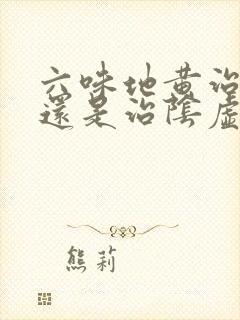 六味地黃治
還是治陰虛
熊莉